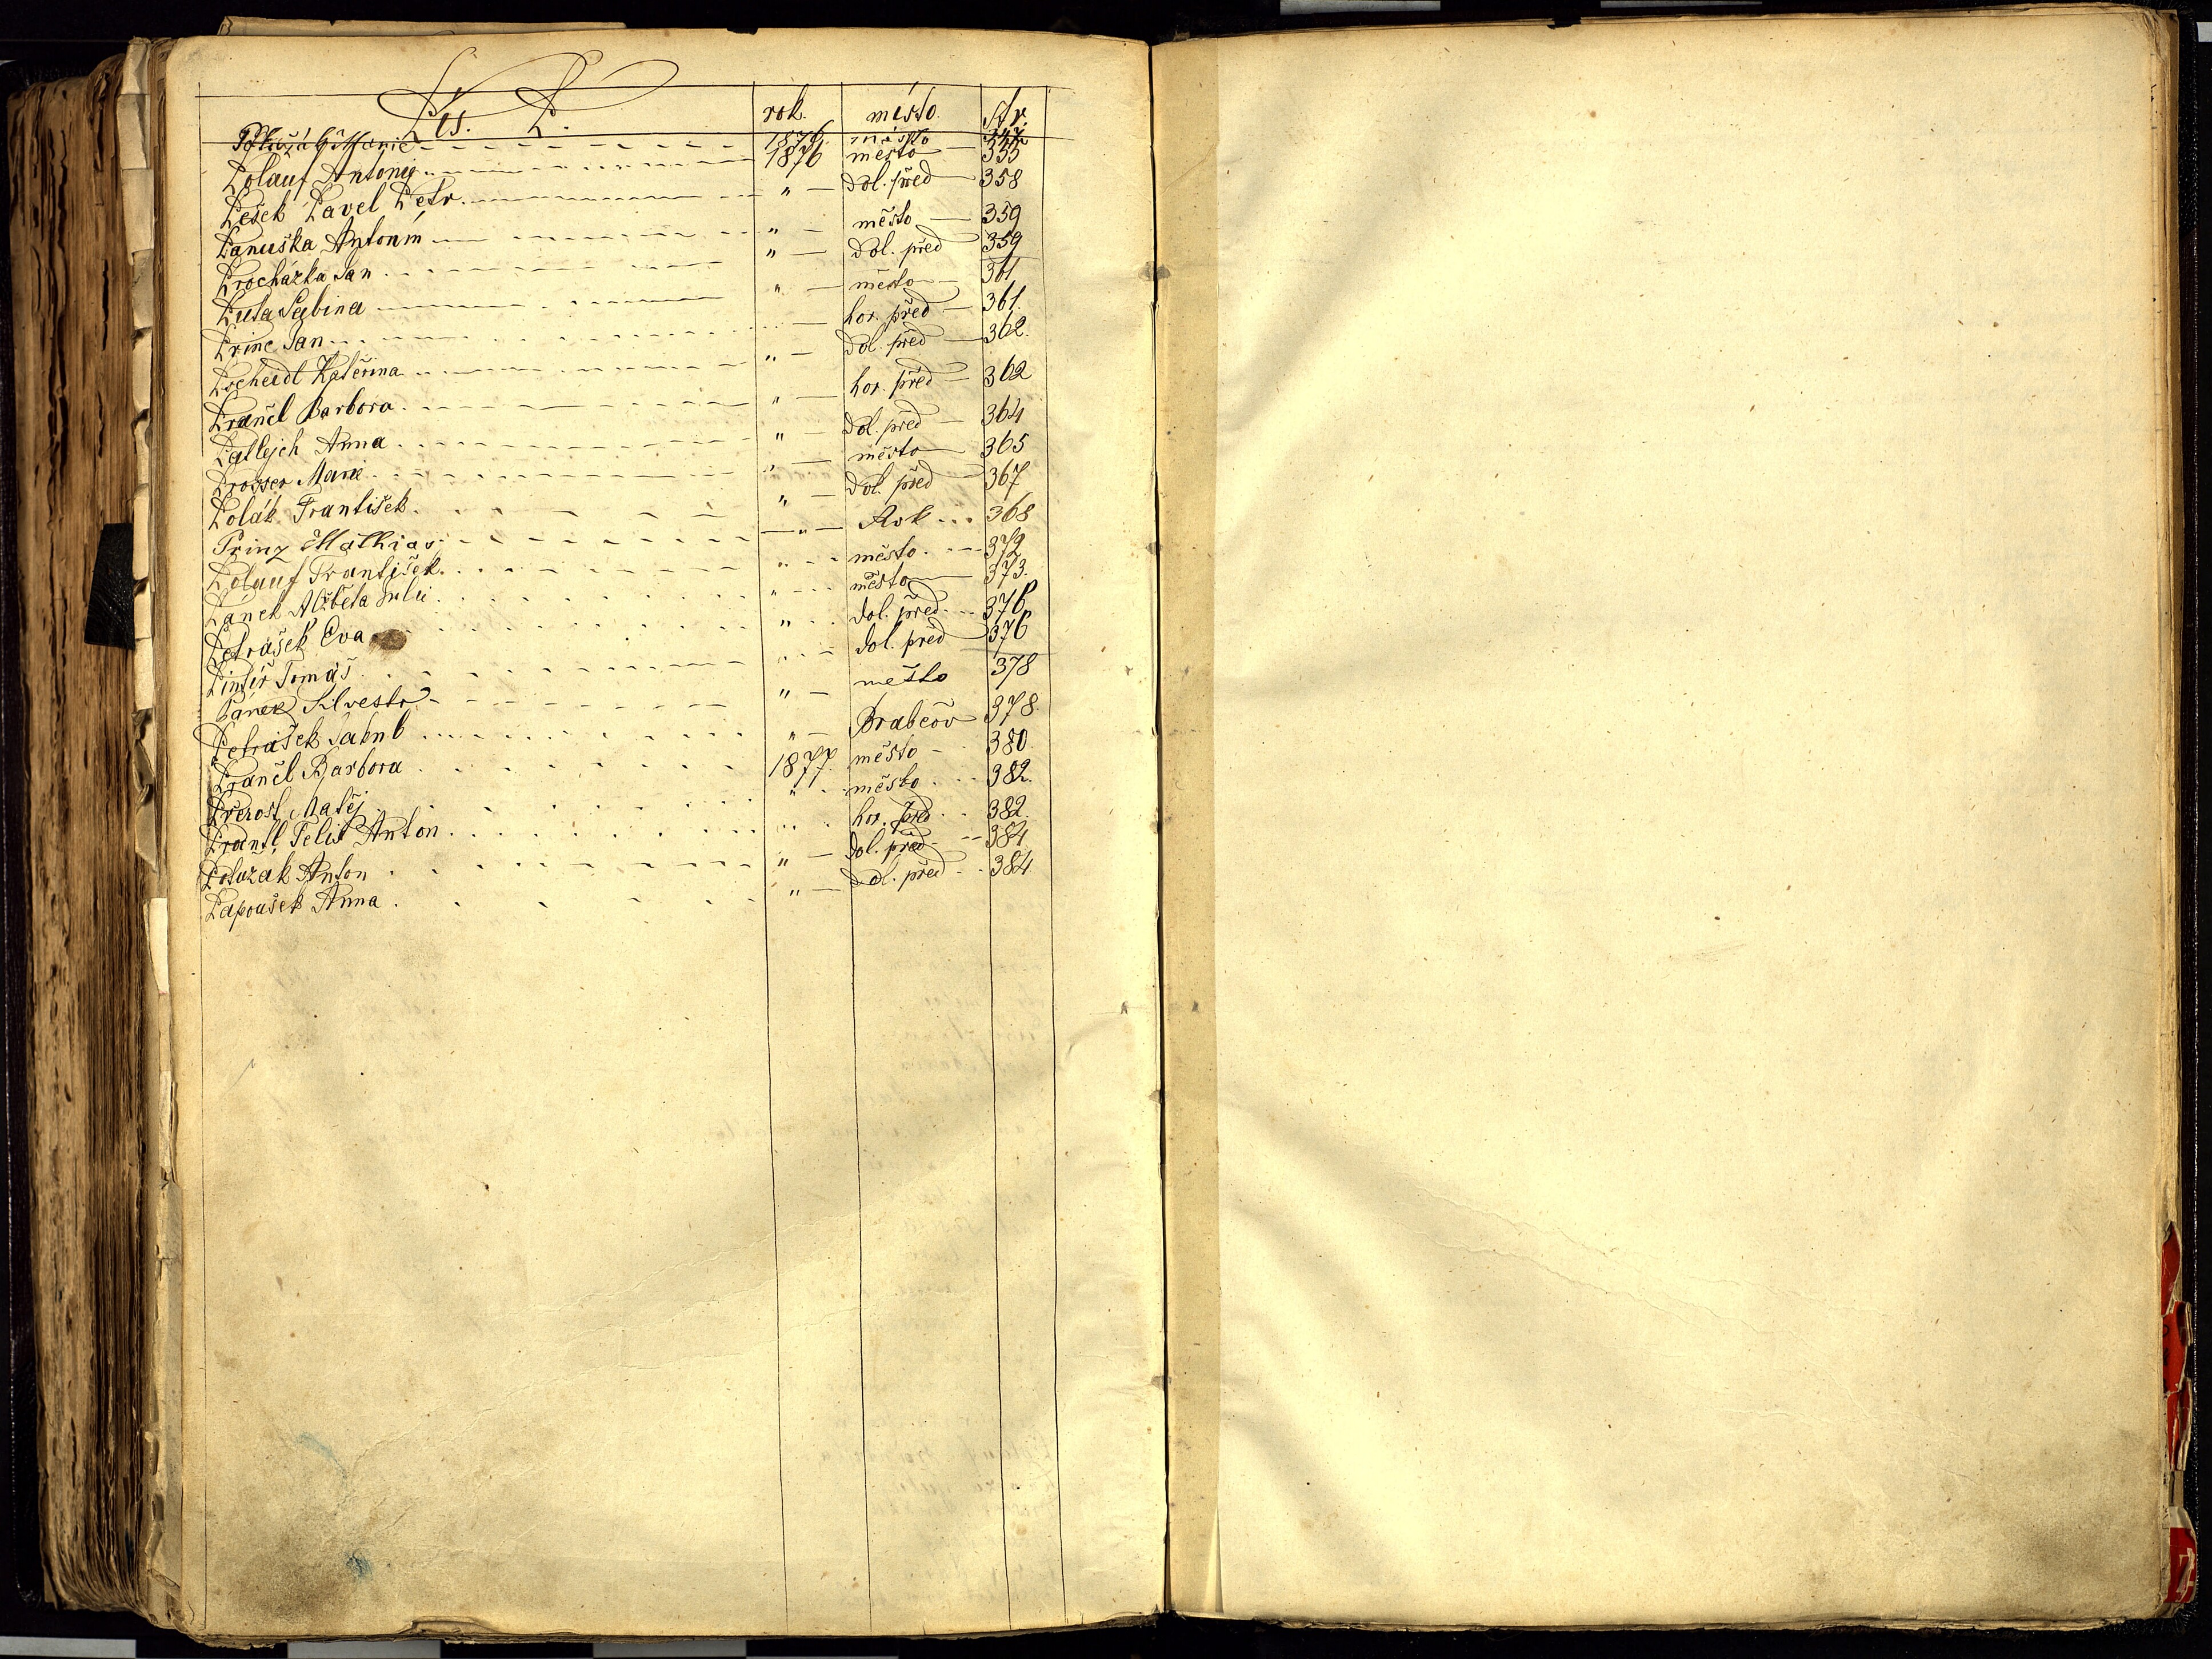 Lis. P. rok. město. Str.
Potužák Marie 1876 město 347
Polauf Antonij 1876 město 355
Pešek Pavel Petr " dol. před 358
Panuška Antonín " město 359
Procházka Jan " dol. před 359
Puta Sabina " město 361
Princ Jan hor. před 361.
Pscheidl Kateřina " dol. před 362.
Prančl Barbora " hor. před 362
Patlejch Anna " dol. před 364
Prosser Marie " město 365
Polák František " dol. před 367
Prinz Mathias " Rok 368
Polauf František " město 372
Pánek Alžběta Julie " město 373.
Petrášek Eva " dol. před 376
Pintíř Tomáš " dol. před 376
Pánek Silvestr " město 378
Petrášek Jakub " Brabcov 378.
Prančl Barbora 1877. město 380
Přerost Matěj " město 382.
Prantl Felix Anton " hor. před 382.
Potužák Anton " dol. před 384
Papoušek Anna " dol. před 384